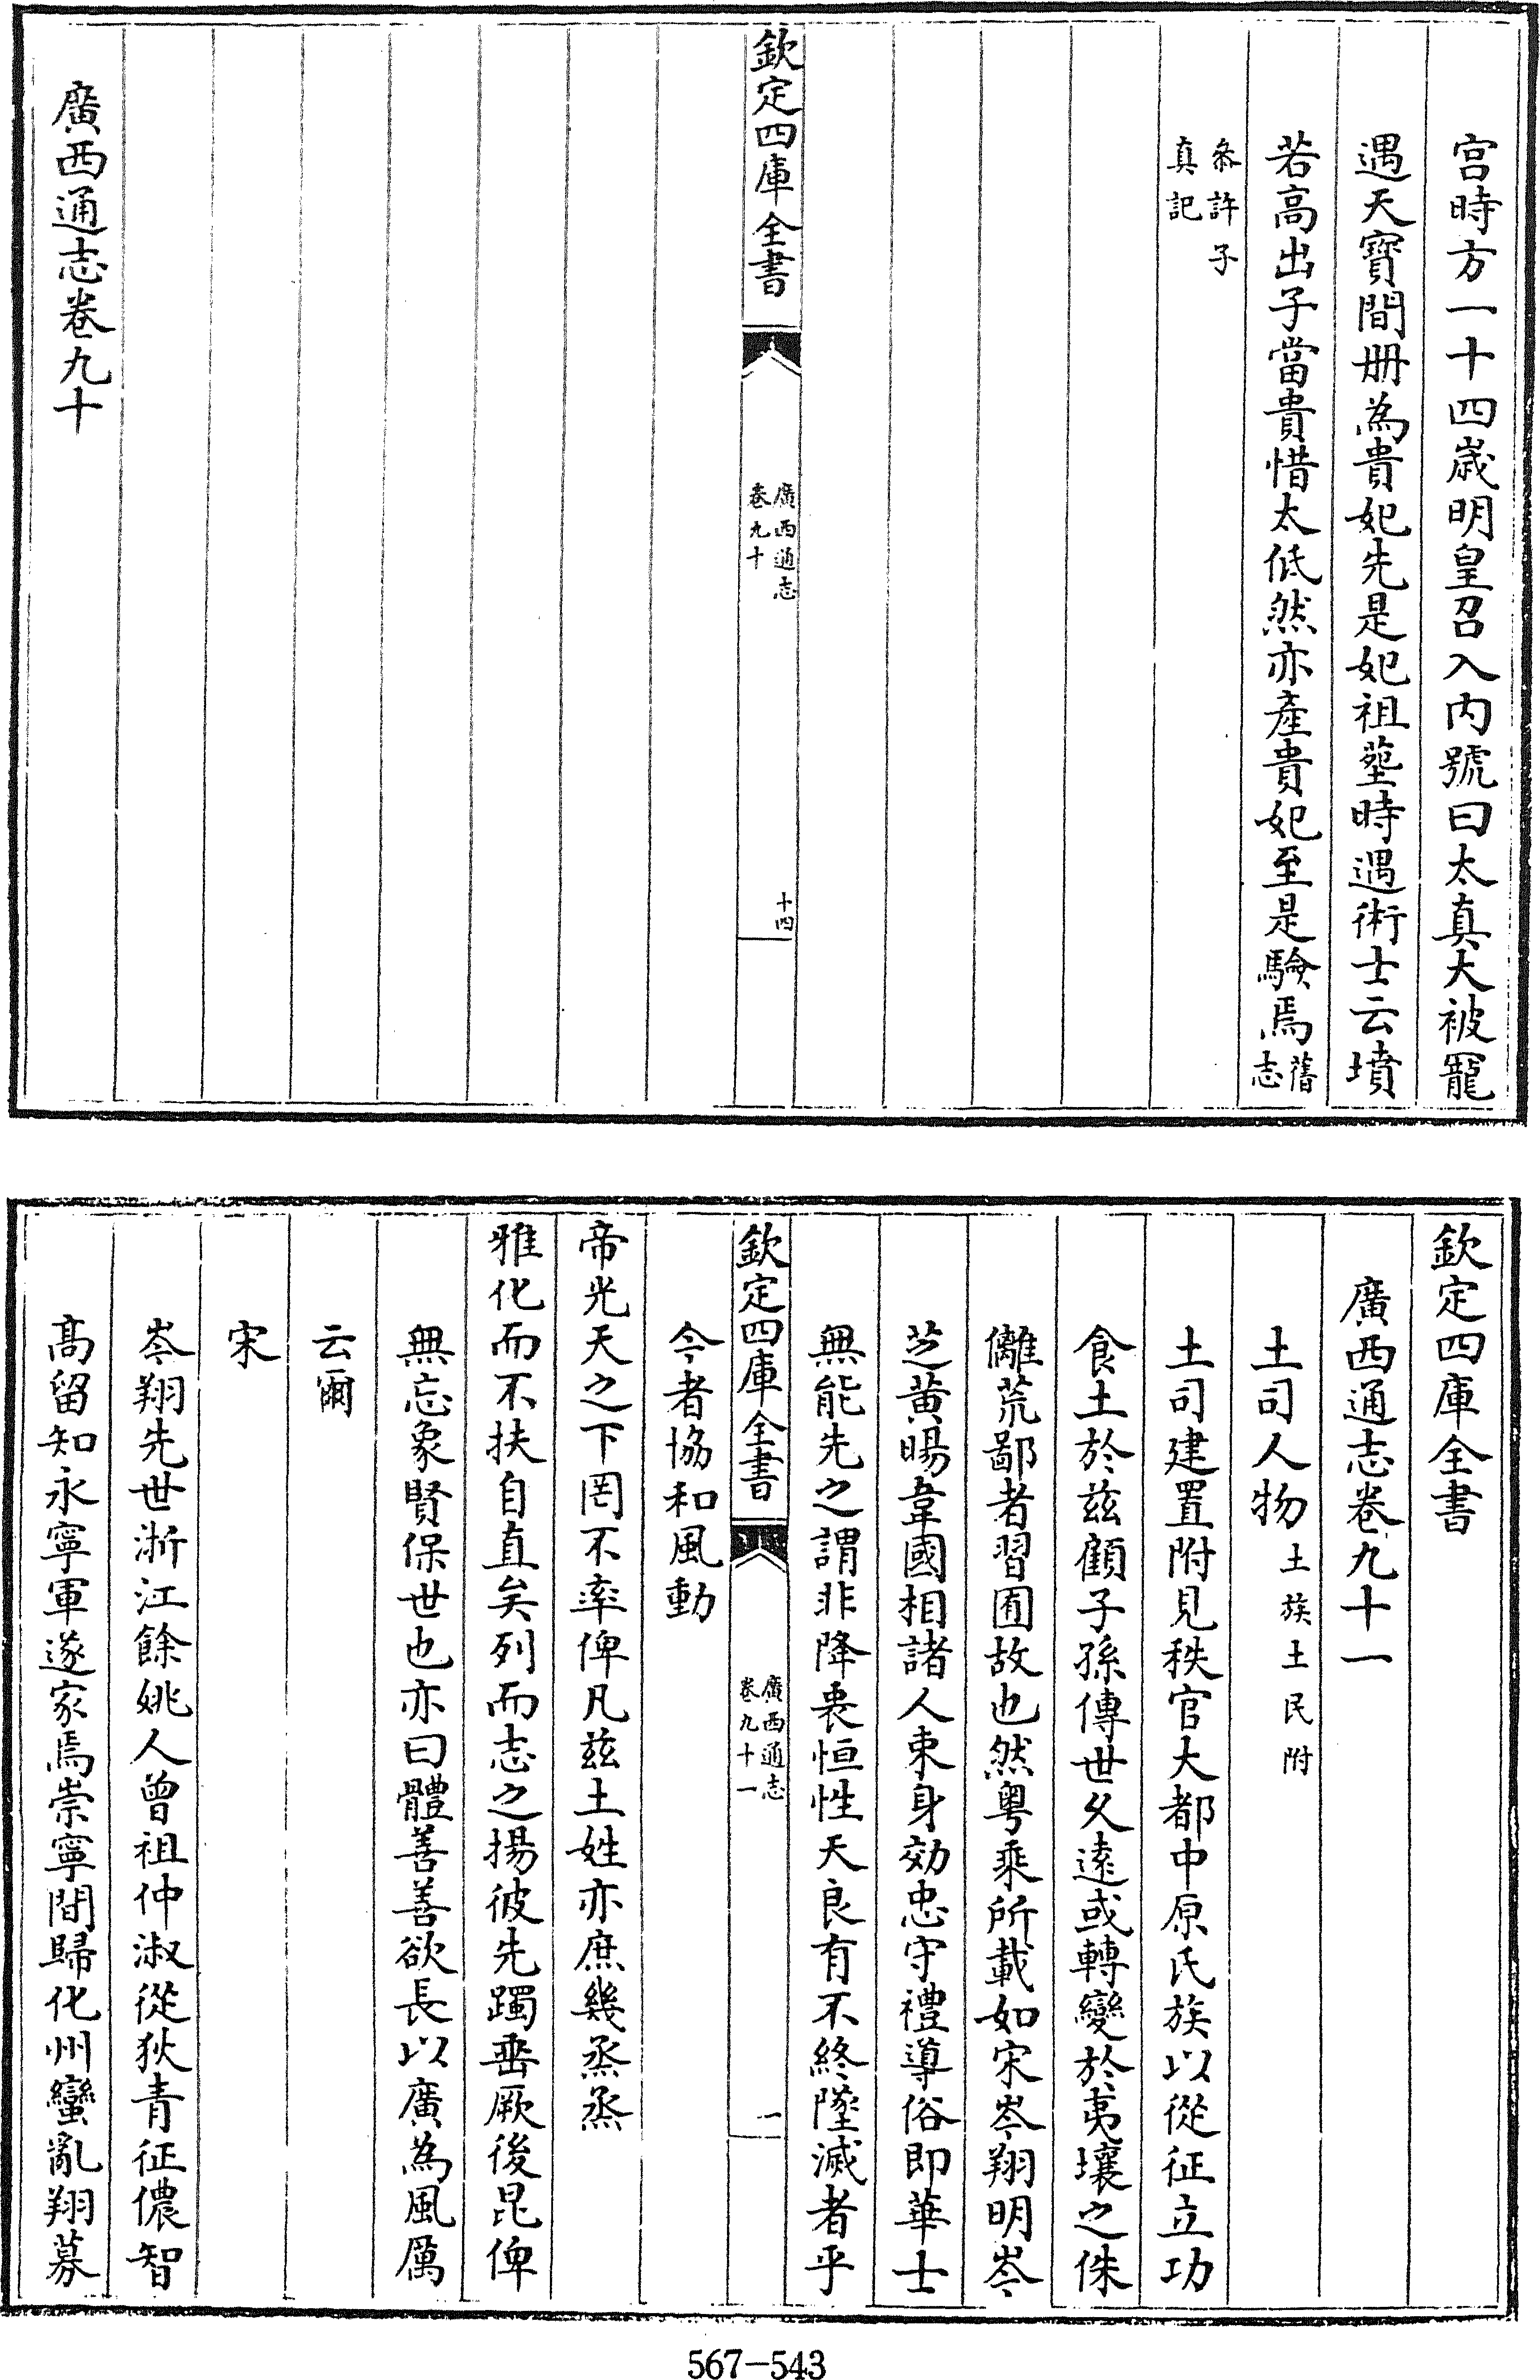 宫時方一十四歳明皇召入内號曰太真大被寵
遇天寳間册為貴妃先是妃祖塟時遇術士云墳
若高出子當貴惜太低然亦產貴妃至是驗焉舊志
叅許子真記
欽定四庫全書
廣西通志
卷九十
十四
廣西通志卷九十
欽定四庫全書
廣西通志卷九十一
土司人物土族土民附
土司建置附見秩官大都中原氏族以從征立功
食土於兹顧子孫傳世乆逺或轉變於夷壤之侏
離荒鄙者習囿故也然粤乘所載如宋岑翔明岑
芝黄暘韋國相諸人束身効忠守禮導俗即華士
無能先之謂非降衷恒性天良有不終墜滅者乎
欽定四庫全書
廣西通志
卷九十一
一
今者協和風動
帝光天之下罔不率俾凡兹土姓亦庶幾烝烝
雅化而不扶自直矣列而志之揚彼先躅垂厥後昆俾
無忘象賢保世也亦曰體善善欲長以廣為風厲
云爾
宋
岑翔先世浙江餘姚人曾祖仲淑從狄青征儂智
髙留知永寧軍遂家焉崇寧間歸化州蠻亂翔募
567-543